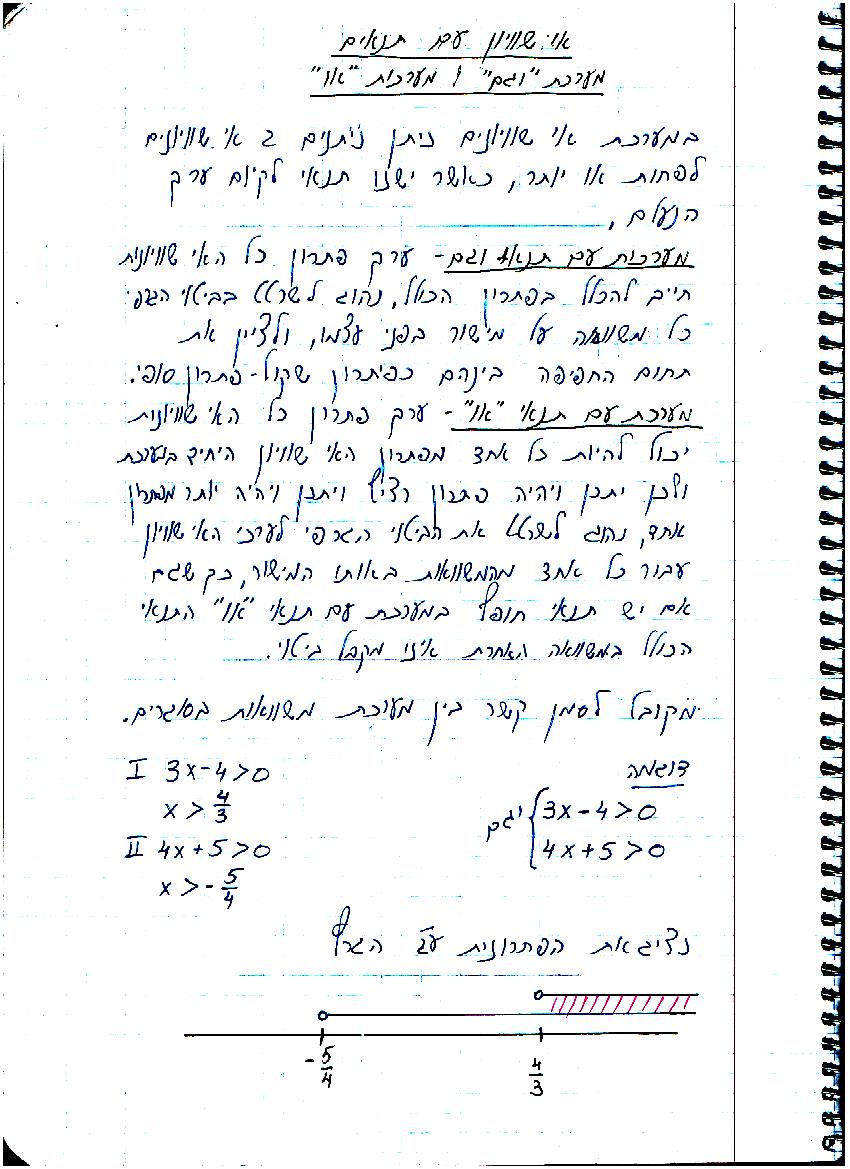 אי שוויון עם תנאים
מערכת "וגם" ו מערכות "או"
במערכת אי שוויונים ניתן נתנים 2 אי שוויונים
לפחות או יותר, כאשר ישנו תנאי לקיום ערך
הנעלם.
מערכות עם תנאי וגם - ערך פתרון כל האי שוויונות
חייב להכלל בפתרון הכולל, נהוג לשרטט בביטוי הגרפי
כל משוואה על מישור בפני עצמו, ולציין את
תחום החפיפה בינהם כפיתרון שקול-פתרון סופי.
מערכת עם תנאי "או" - ערך פתרון כל האי שוויונות
יכול להיות כל אחד מפתרון האי שוויון היחיד במערכת
ולכן יתכן ויהיה פתרון רציף ויתכן ויהיה יותר מפתרון
אחד, נהוג לשרטט את הביטוי הגרפי לערכי האי שוויון
עבור כל אחד מהמשוואות באותו המישור, כך שגם
אם יש תנאי חופף במערכת עם תנאי "או" התנאי
הכולל במשוואה האחרת אינו מקבל ביטוי.
מקובל לסמן קשר בין מערכת משוואות בסוגריים.
דוגמה
וגם { 3x-4>0
4x+5>0
I 3x-4>0
x > 4/3
II 4x+5>0
x > -5/4
נציג את הפתרונות על הגרף
-5/4 4/3